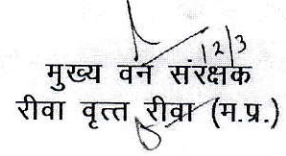 123
मुख्य वन संरक्षक
रीवा वृत्त रीवा (म.प्र.)